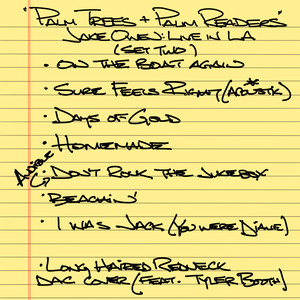 "PALM TREES + PALM READERS"
JAKE OWEN: LIVE IN LA
(SET TWO)
• ON THE BOAT AGAIN
• SURE FEELS RIGHT (ACOUSTIC) *
• DAYS OF GOLD
• HOMEMADE
AUDIBLE
• DON'T ROCK THE JUKEBOX
• BEACHIN'
• I WAS JACK (YOU WERE DIANE)
• LONG HAIRED REDNECK
DAC COVER (FEAT. TYLER BOOTH)